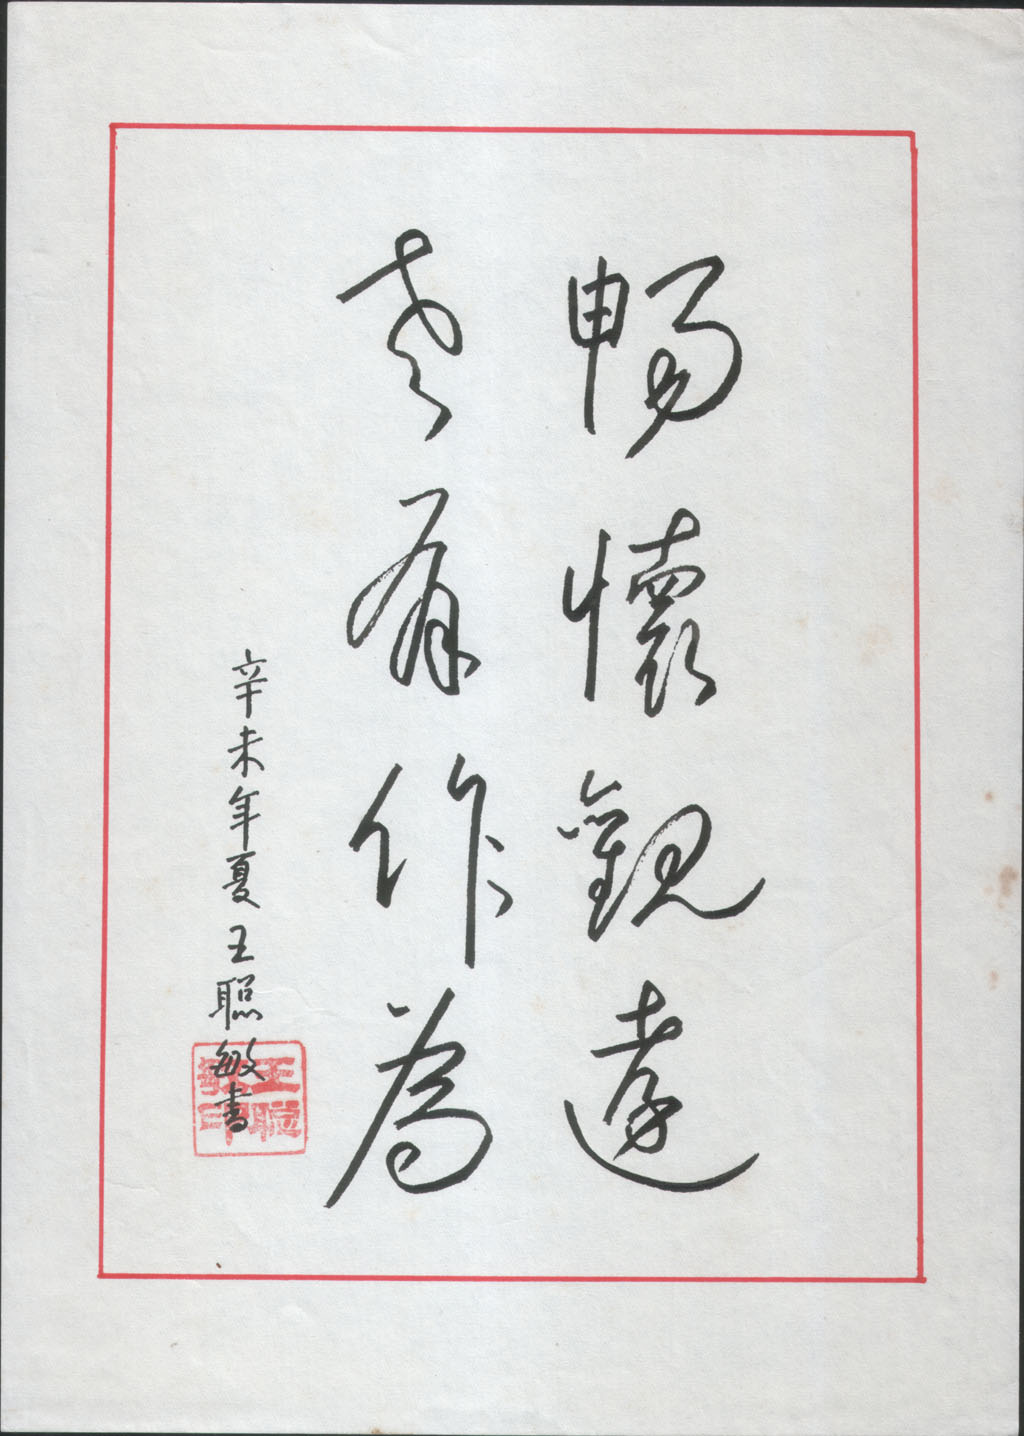 暢懷觀遠
老有作為
辛未年夏王聰敏書
王聰敏印